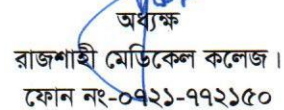 অধ্যক্ষ
রাজশাহী মেডিকেল কলেজ।
ফোন নং-০৭২১-৭৭২১৫০